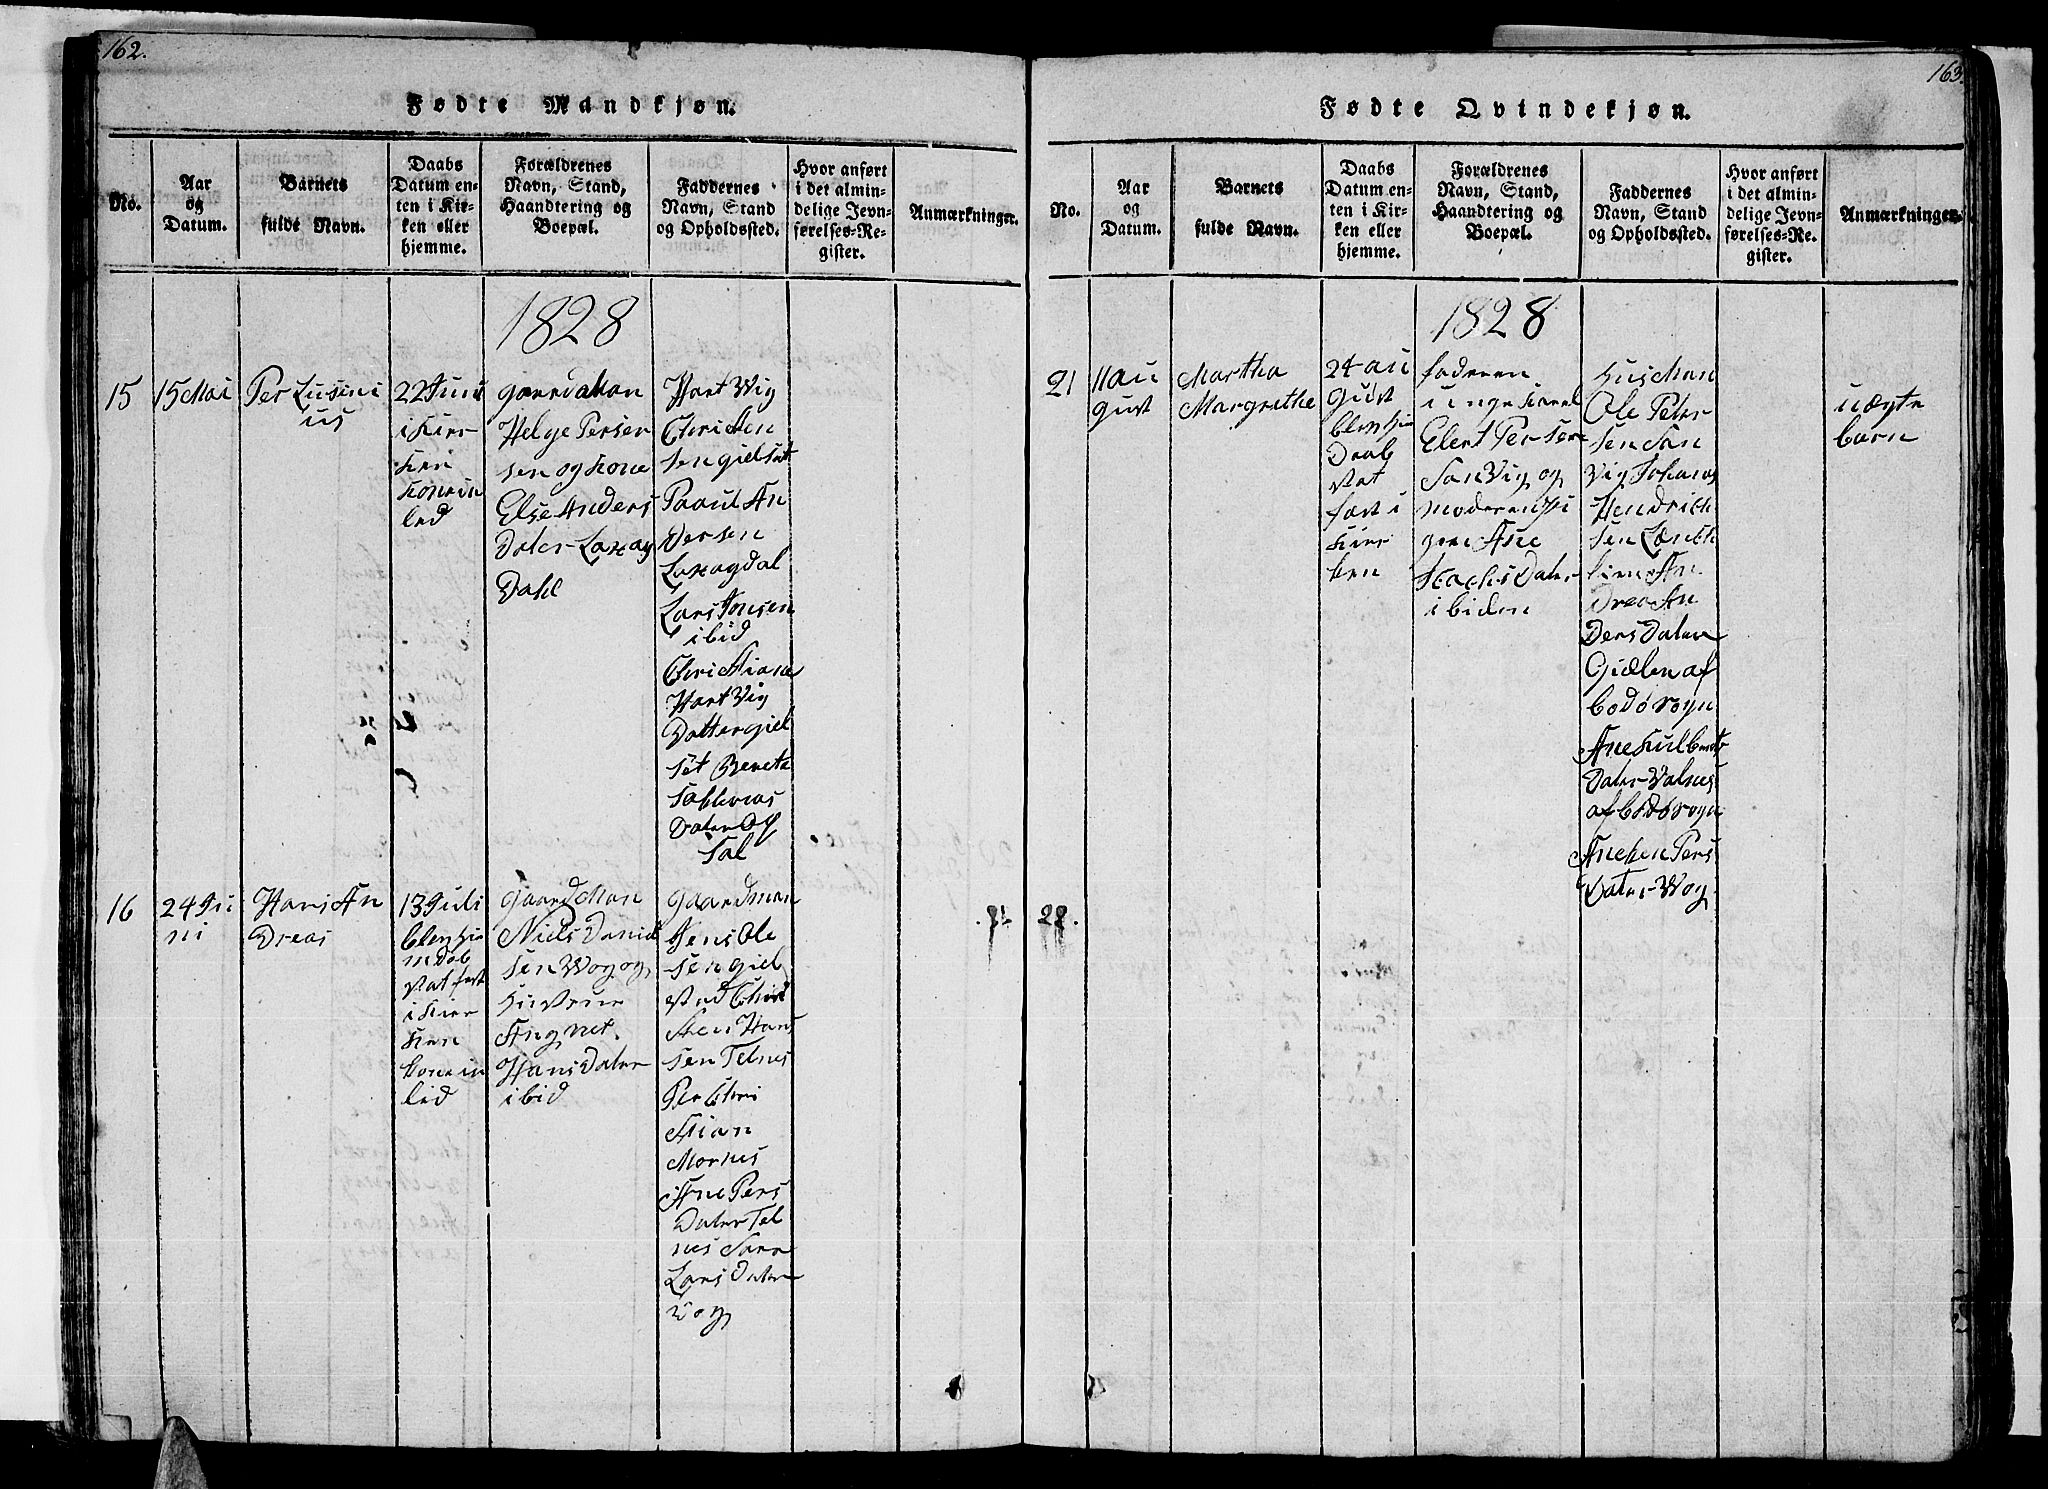 162.
Fødte Mandkjøn.
No.
Aar
og
Datum.
Barnets
fulde Navn.
Daabs
Datum en-
ten i Kir-
ken eller
hjemme.
Forældrenes
Navn, Stand,
Haandtering og
Boepæl.
Faddernes
Navn, Stand
og Opholdssted.
Hvor anført
i det almin-
delige Jevn-
førelses-Re-
gister.
Anmærkninger.
1828
15
15 Mai
Per Lusini
us
22 Juni
i Kier
ken
Kone in
led
gaardMan
Helge Perser
sen og Kone
Else Anders
Dater Laxag
Dahl
HartWig
Christen
sen gielset
Paaul An
Dersen
Laxagdal
Lars Jonsen
ibid
Christiane
HartWig
Datter giel
set Bereta
Datter
16
24 Ju
ni
Hans An
Dreas
13 Juli
blev hie
mdøb
Vat fæst
i Kier
ken
Kone in
led
gaardMan
Niels Daniel
sen Wog og
Hustrue
Angnet
HansDater
ibid
gaardman
Jens Ole
sen giel
Vad Chri
sten Hans
sen Telnes
Per Chri
stian
Mornes
Ane Pers
Dater Tel
nes Sara
Lars Dater
Wog
163.
Fødte Qvindekjøn.
No.
Aar
og
Datum.
Barnets
fulde Navn.
Daabs
Datum en-
ten i Kir-
ken eller
hjemme.
Forældrenes
Navn, Stand,
Haandtering og
Boepæl.
Faddernes
Navn, Stand
og Opholdssted.
Hvor anført
i det almin-
delige Jevn-
førelses-Re-
gister.
Anmærkninger.
1828
21
11 au
gust
Martha
Margrethe
24 au
gust
blev hie
Daab
Vat
fæst i
Kier
ken
faderen
unge Karel
Elert Persen
SanVig og
moderen Pi
gen Ane
IsachsDater
ibiden
HusMan
Ole Peter
sen San
Vig Johanes
Hendrich
sen
lien An
Drea An
Ders Dater
Gielen af
bodø sogn
Ane Kulbent
Dater Valnes
af bodø sogn
Anehen Pers
Dater Wog
uægte
barn
22.